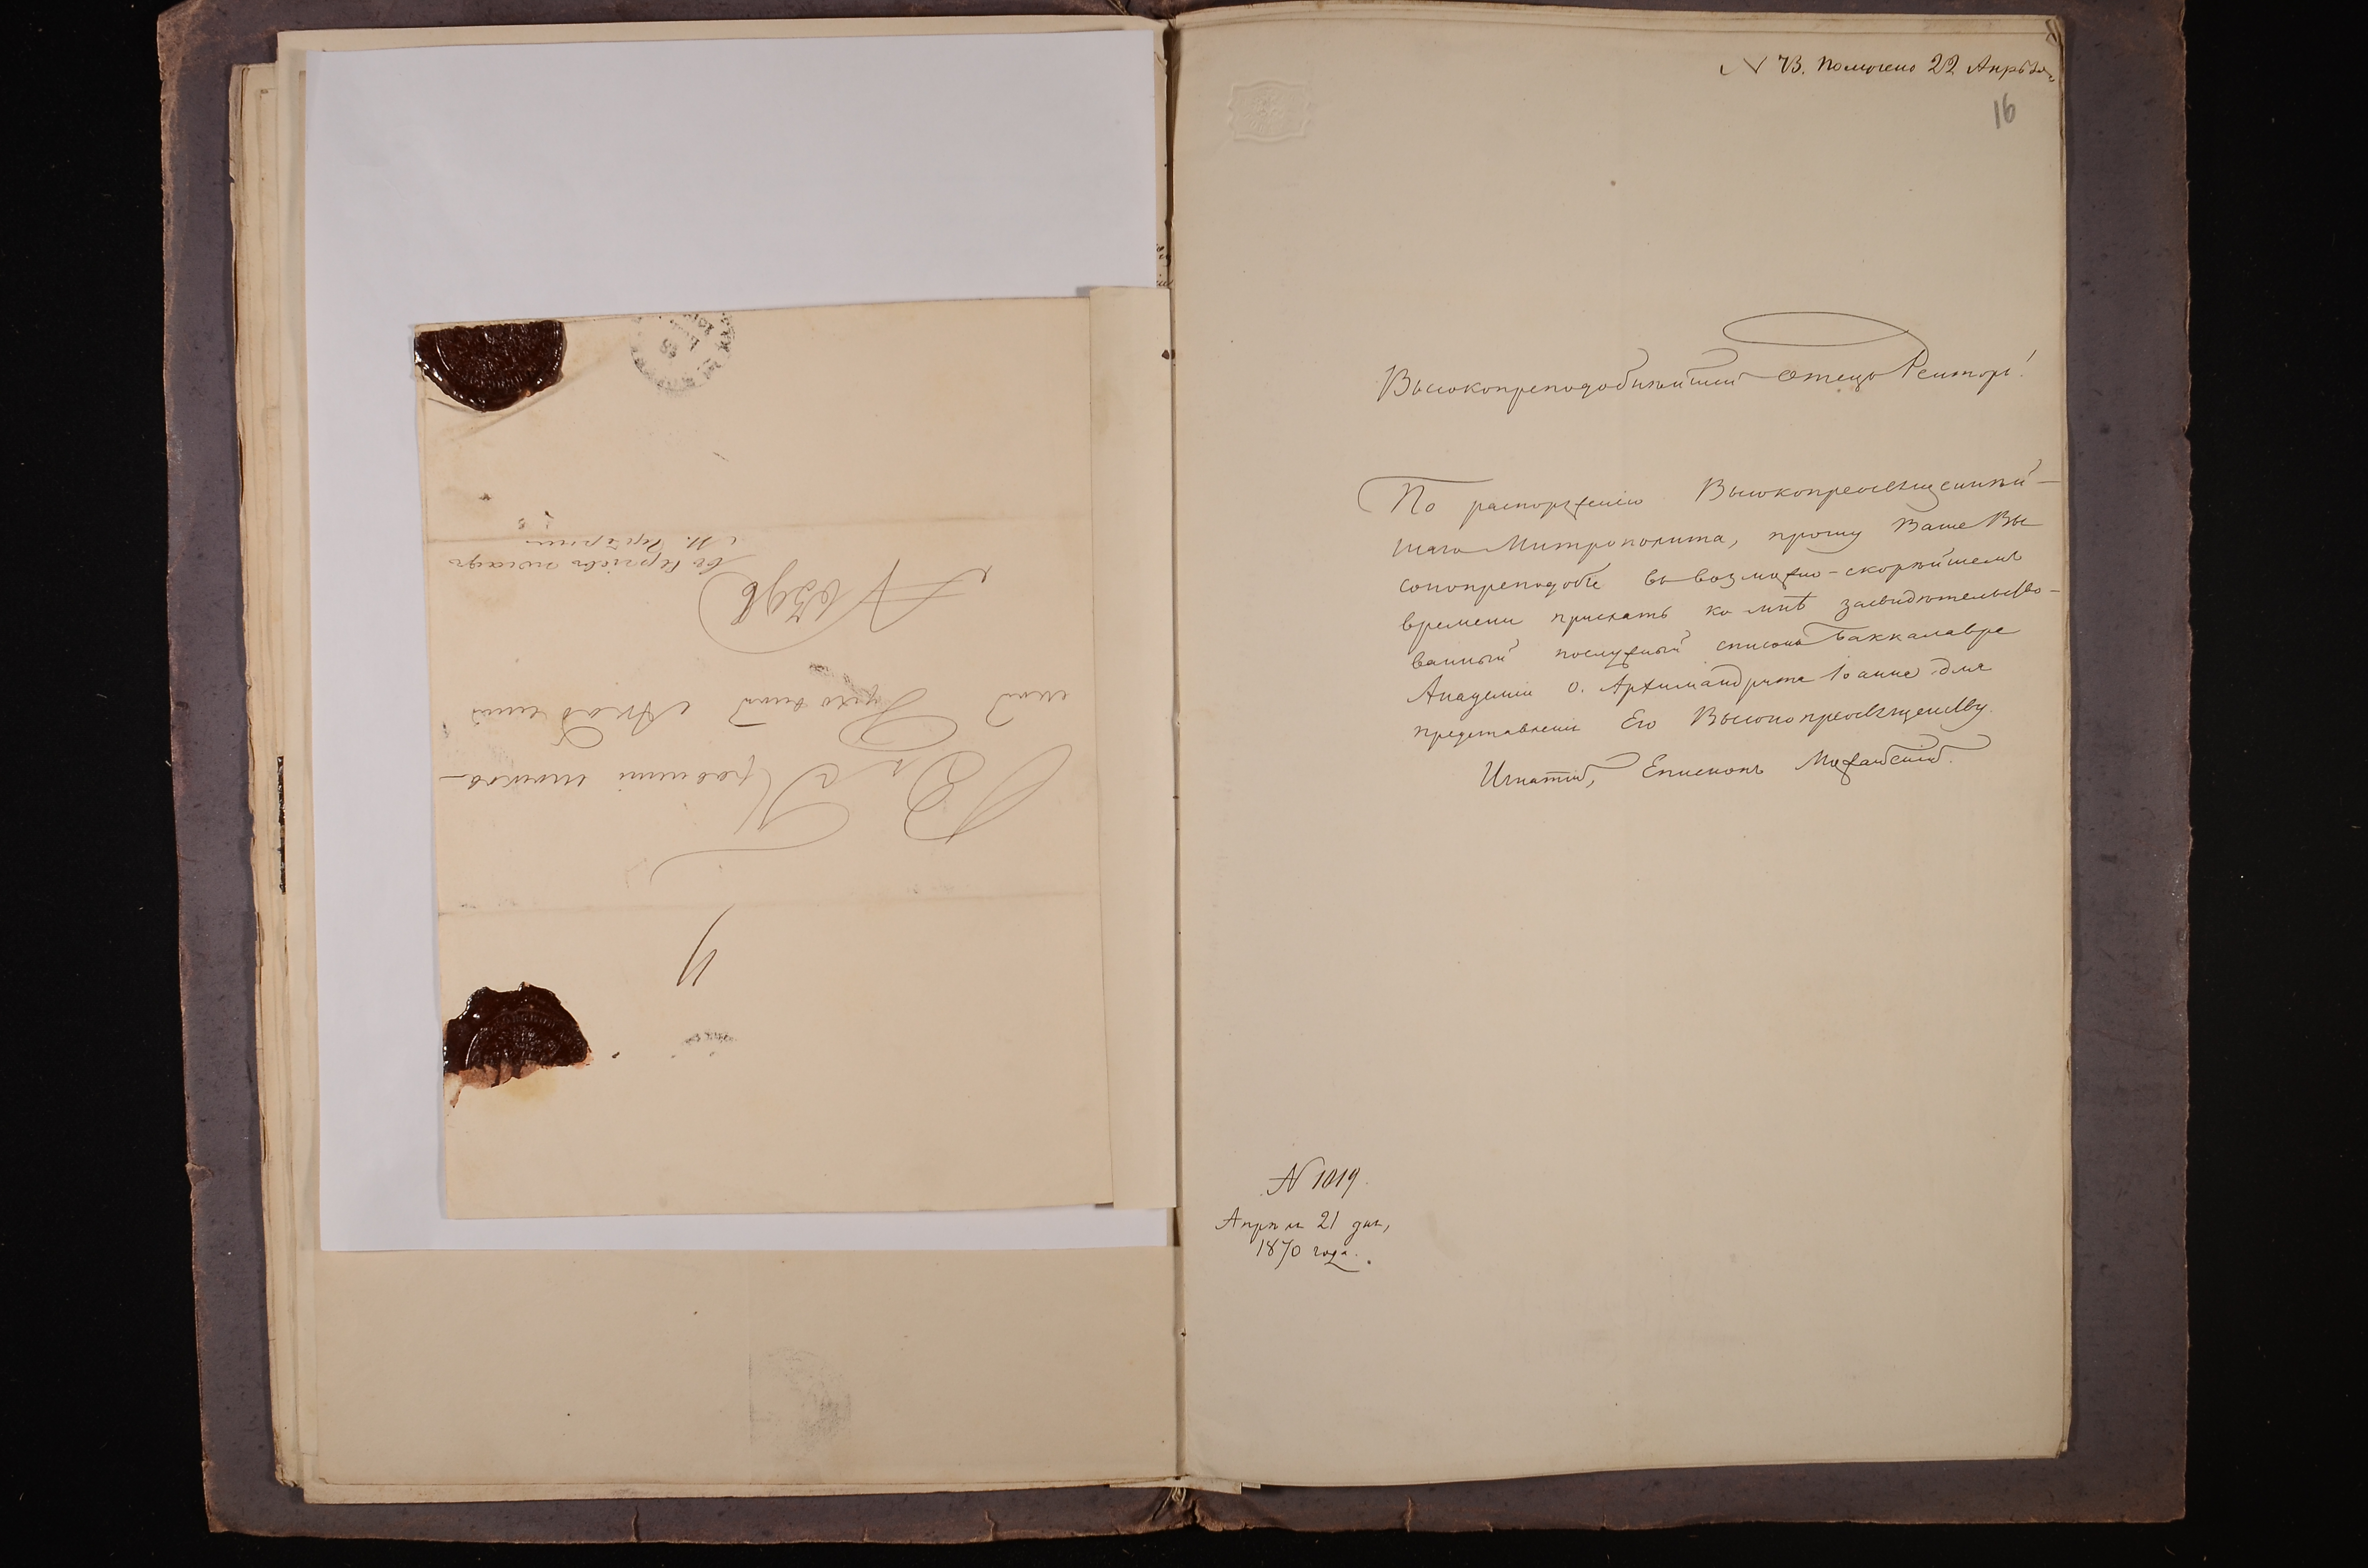 Въ Правленіе Москов-
ской Духовной Академіи
№ 6398
въ Сергіевъ посадъ
N 73. Получено 22 Апрѣля
16
Высокопреподобнѣйшій отецъ Ректоръ!
По распоряженію Высокопреосвященнѣй-
шаго Митрополита, прошу Ваше Вы
сокопреподобіе въ возможно-скорѣйшемъ
времени прислать ко мнѣ засвидѣтельство-
ванный послужный списокъ Баккалавра
Академіи о. Архимандрита Іоанна для
представленія Его Высокопреосвященству.
Игнатій, Епископъ Можайскій.
N 1019.
Апрѣля 21 дня,
1870 года.